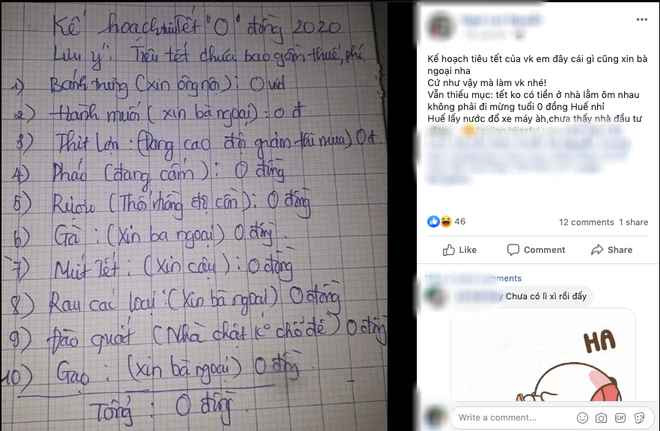 Kế hoạch tiêu tết "0" đồng 2020
Lưu ý: Tiêu tết chưa bao gồm thuế, phí
1) Bánh chưng (xin ông nội): 0 vnd
2) Hành muối (xin bà ngoại): 0 đ
3) Thịt lợn: (Đang cao độ giảm tải mua) 0đ.
4) Pháo (đang cấm): 0 đồng
5) Rượu (Thổi nồng độ cồn): 0 đồng
6) Gà: (Xin bà ngoại) 0 đồng.
7) Mứt Tết: (Xin cậu): 0 đồng
8) Rau các loại: (Xin bà ngoại) 0 đồng
9) Đào quất (Nhà chật k° chỗ để) 0 đồng
10) Gạo: (xin bà ngoại) 0 đồng.
Tổng: 0 đồng
Kế hoạch tiêu tết của vk em đây cái gì cũng xin bà
ngoại nha
Cứ như vậy mà làm vk nhé!
Vẫn thiếu mục: tết ko có tiền ở nhà lằm ôm nhau
không phải đi mừng tuổi 0 đồng Huế nhỉ
Huế lấy nước đổ xe máy àh,chưa thấy nhà đầu tư
46
12 comments 1 share
Like Comment Share
comments
Chưa có lì xì rồi đấy
HA
Write a comment...
GIF